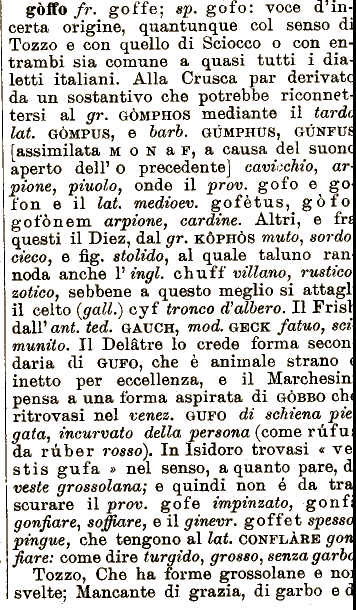 gòffo fr. goffe; sp. gofo: voce d'in-
certa origine, quantunque col senso di
Tozzo e con quello di Sciocco o con en-
trambi sia comune a quasi tutti i dia-
letti italiani. Alla Crusca par derivato
da un sostantivo che potrebbe riconnet-
tersi al gr. GÒMPHOS mediante il tardo
lat. GÒMPUS, e barb. GÚMPHUS, GÚNFUS
[assimilata M o N a F, a causa del suono
aperto dell' o precedente] cavicchio, ar-
pione, piuolo, onde il prov. gofo e go-
fon e il lat. medioev. gofètus, gòfo
gofònem arpione, cardine. Altri, e fra
questi il Diez, dal gr. KÔPHÒS muto, sordo
cieco, e fig. stolido, al quale taluno ran-
noda anche l' ingl. chuff villano, rustico
zotico, sebbene a questo meglio si attagl
il celto (gall.) cyf tronco d'albero. Il Frish
dall' ant. ted. GAUCH, mod. GECK fatuo, sci
munito. Il Delâtre lo crede forma secon
daria di GUFO, che è animale strano e
inetto per eccellenza, e il Marchesin
pensa a una forma aspirata di GÒBBO che
ritrovasi nel venez. GUFO di schiena pie
gata, incurvato della persona (come rúfu
da rúber rosso). In Isidoro trovasi « ve
stis gufa » nel senso, a quanto pare, d
veste grossolana; e quindi non é da tra
scurare il prov. gofe impinzato, gonf
gonfiare, soffiare, e il ginevr. goffet spesso
pingue, che tengono al lat. CONFLÀRE gon
fiare: come dire turgido, grosso, senza garbo
Tozzo, Che ha forme grossolane e no
svelte; Mancante di grazia, di garbo e d